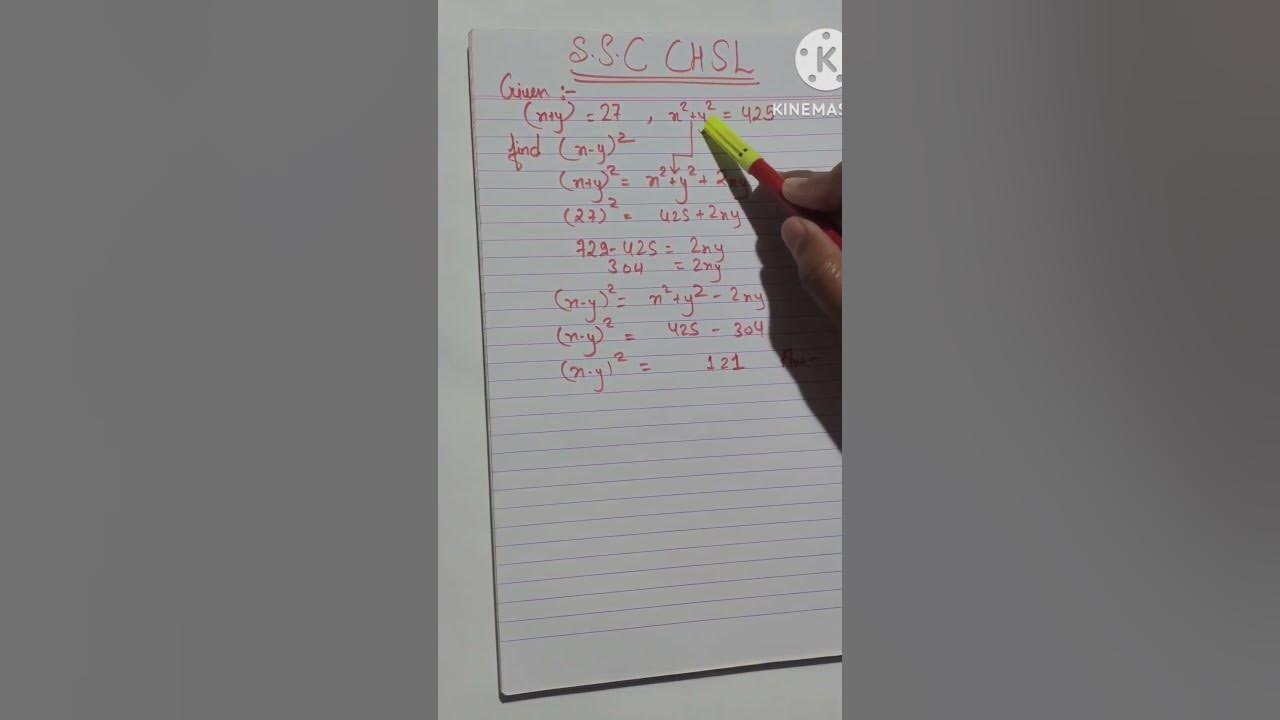 S.S.C CHSL
Given :-
(x+y) = 27 , x²+y² = 425
find (x-y)²
(x+y)² = x²+y²+2xy
(27)² = 425+2xy
729-425 = 2xy
304 = 2xy
(x-y)² = x²+y²-2xy
(x-y)² = 425 - 304
(x-y)² = 121
K
KINEMAS